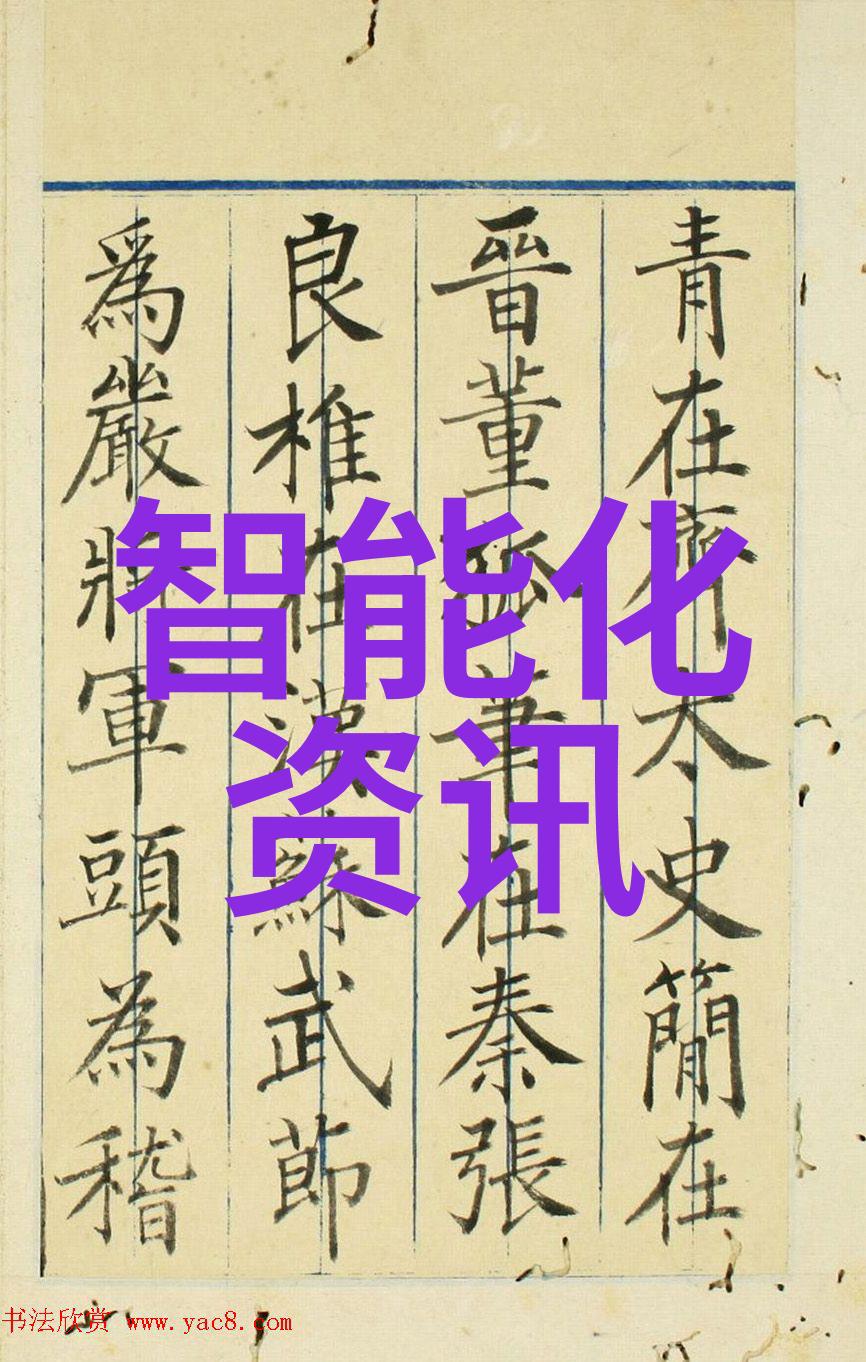 青在齊太史簡在
晉董狐筆在秦張
良椎在漢蘇武節
爲嚴將軍頭為稽
智能化
资讯
书法欣赏 www.yac8.com